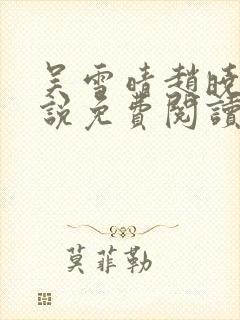 吴雪晴趙曉
說免費閱讀
莫菲勒